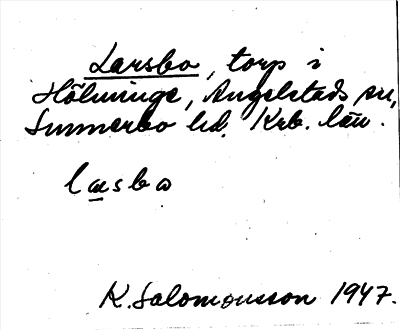 Larsbo, torp i
Hölminge, Angelstads sn,
Sunnerbo hd. Krb. län.
lasbo
K. Salomonsson 1947.